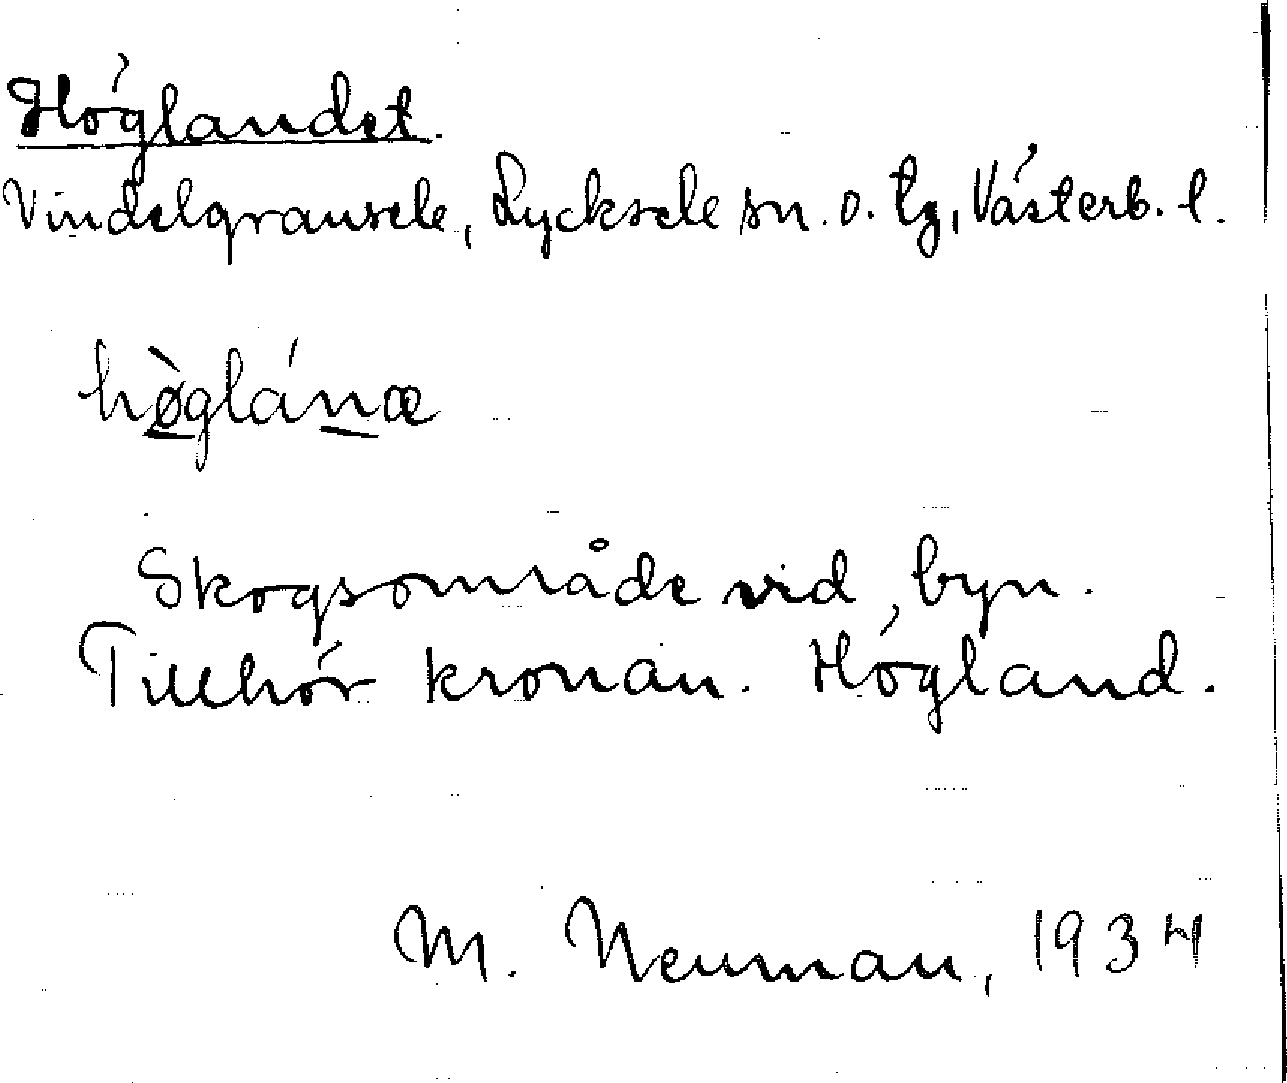 Höglandet.
Vindelgransele, Lycksele sn. o. tg, Västerb. l.
hø̀glánæ
Skogsområde vid byn.
Tillhör kronan. Högland.
M. Neuman, 1934